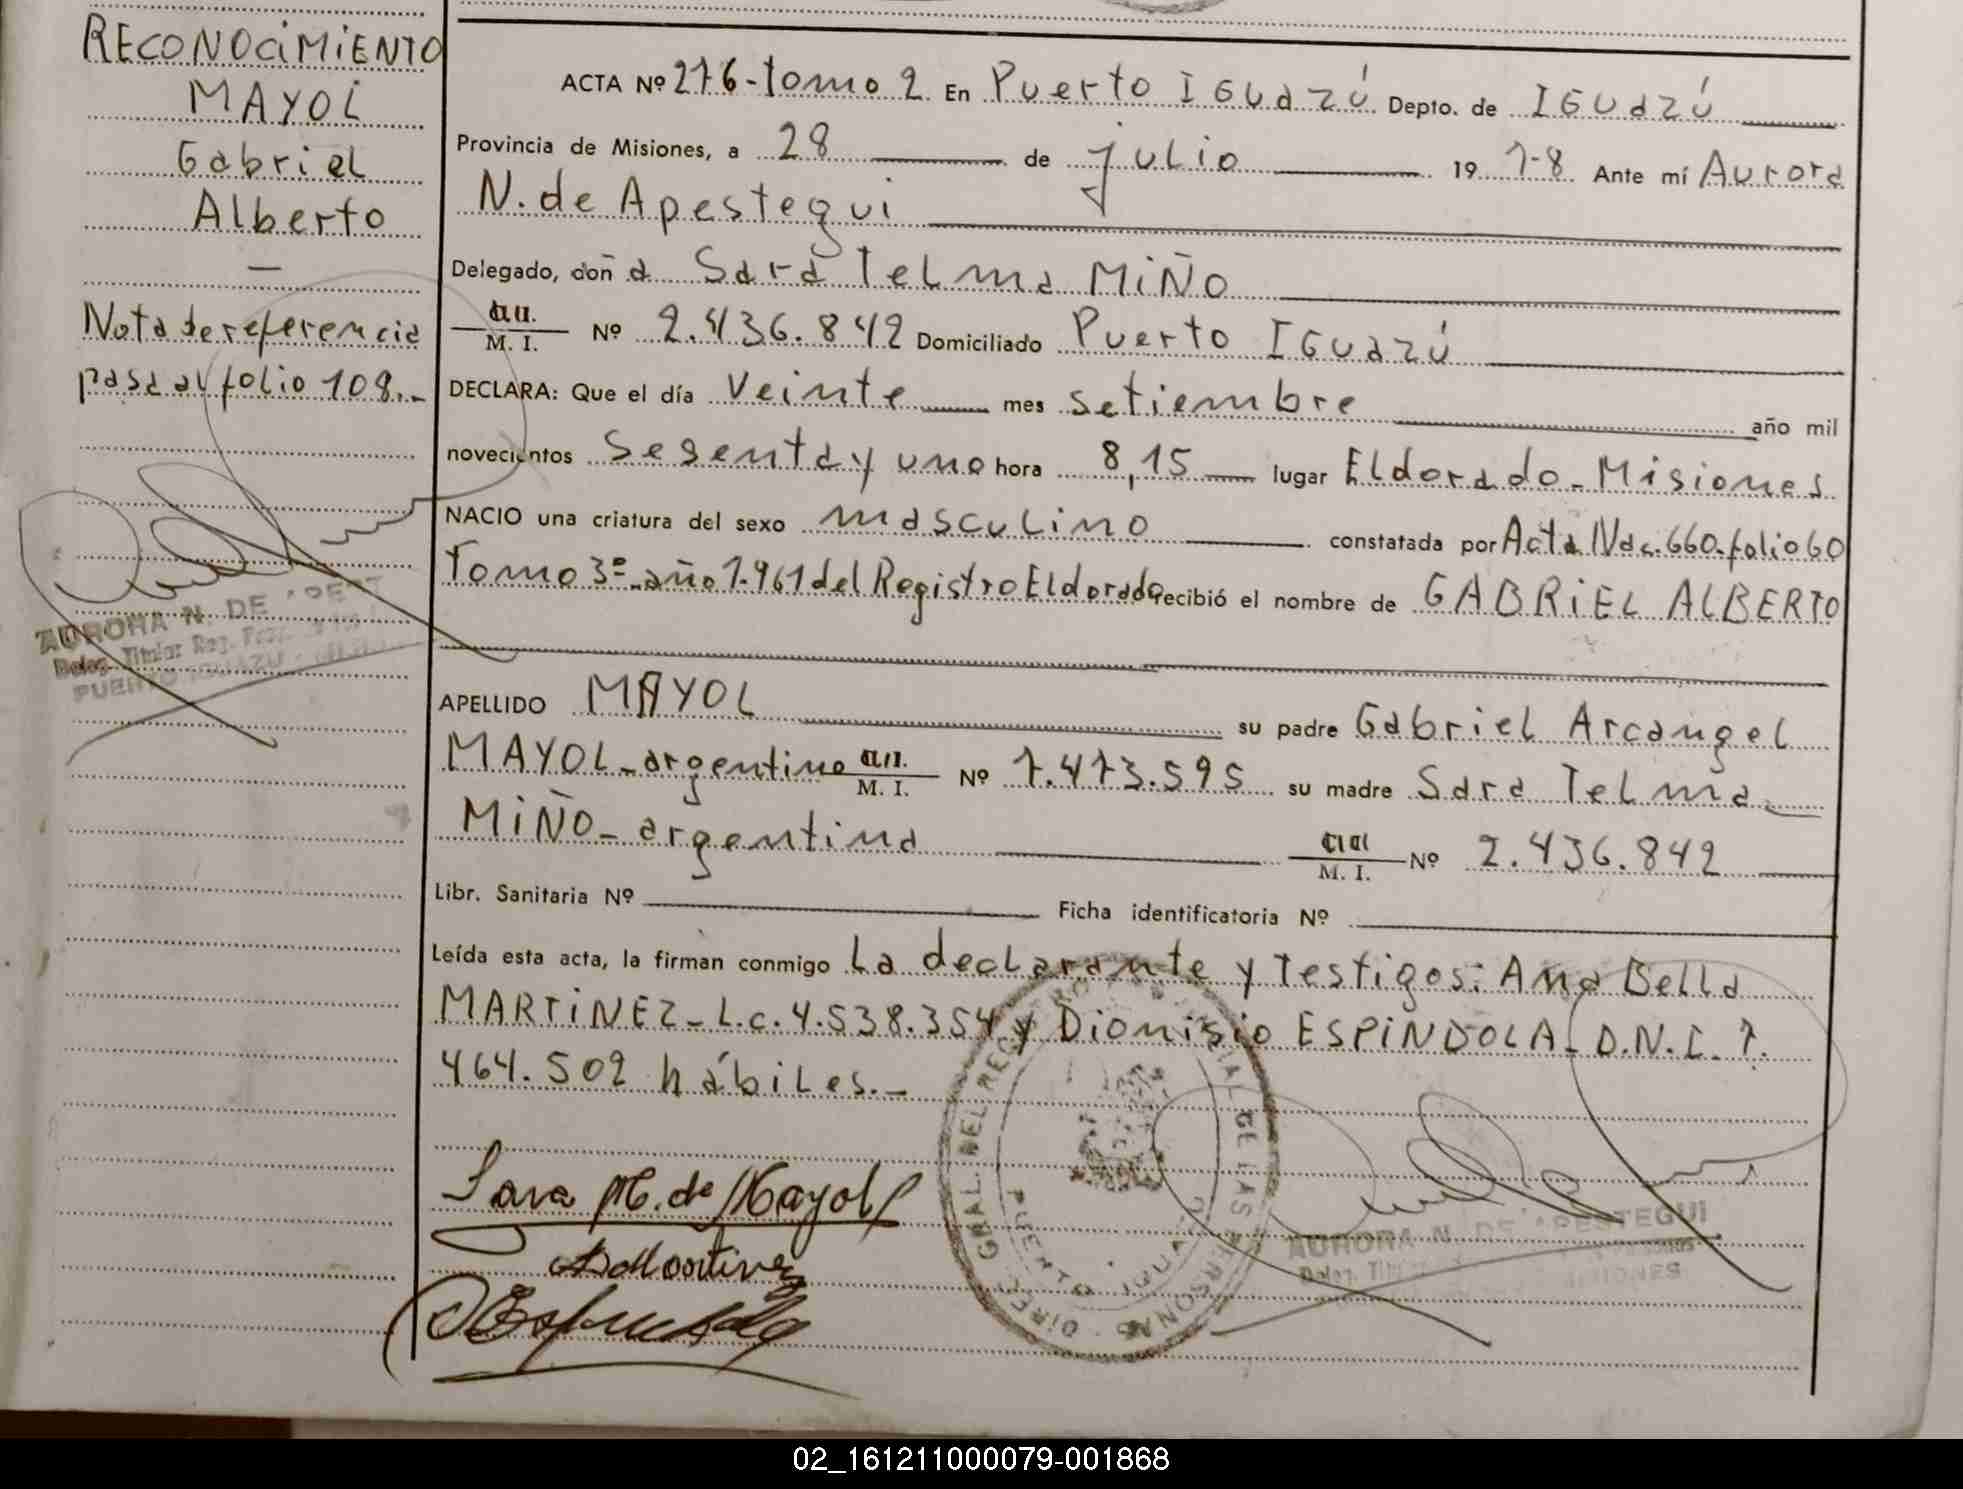 RECONOCIMIENTO
MAYOL
Gabriel
Alberto
Nota de referencia
pasa al folio 108.-
AURORA N. DE
Deleg. Titular Reg. Prov.
PUERTO IGUAZU
ACTA Nº 276-Tomo 2 En Puerto IGUAZÚ Depto. de IGUAZÚ
Provincia de Misiones, a 28 de julio 19 78 Ante mí Aurora
N. de Apestegui
Delegado, doña Sara Telma MIÑO
M. I. Nº 2.436.842 Domiciliado Puerto IGUAZÚ
DECLARA: Que el día Veinte mes setiembre año mil
novecientos sesenta y uno hora 8,15 lugar Eldorado-Misiones
NACIO una criatura del sexo masculino constatada por Acta Nac. 660-folio 60
Tomo 3º-año 1.961 del Registro Eldorado recibió el nombre de GABRIEL ALBERTO
APELLIDO MAYOL su padre Gabriel Arcangel
MAYOL-argentino M. I. Nº 7.473.595 su madre Sara Telma
MIÑO-argentina M. I. Nº 2.436.842
Libr. Sanitaria Nº Ficha identificatoria Nº
Leída esta acta, la firman conmigo La declarante y Testigos: Ana Bella
MARTINEZ-L.c. 4.538.354 y Dionisio ESPINDOLA-D.N.I. 7.
464.502 hábiles.-
Sara M. de Mayol
AMartinez
GRAL. DEL REGISTRO PROVINCIAL DE LAS PERSONAS
PUERTO IGUAZU
AURORA N. DE APESTEGUI
Deleg. Titular
MISIONES
02_161211000079-001868